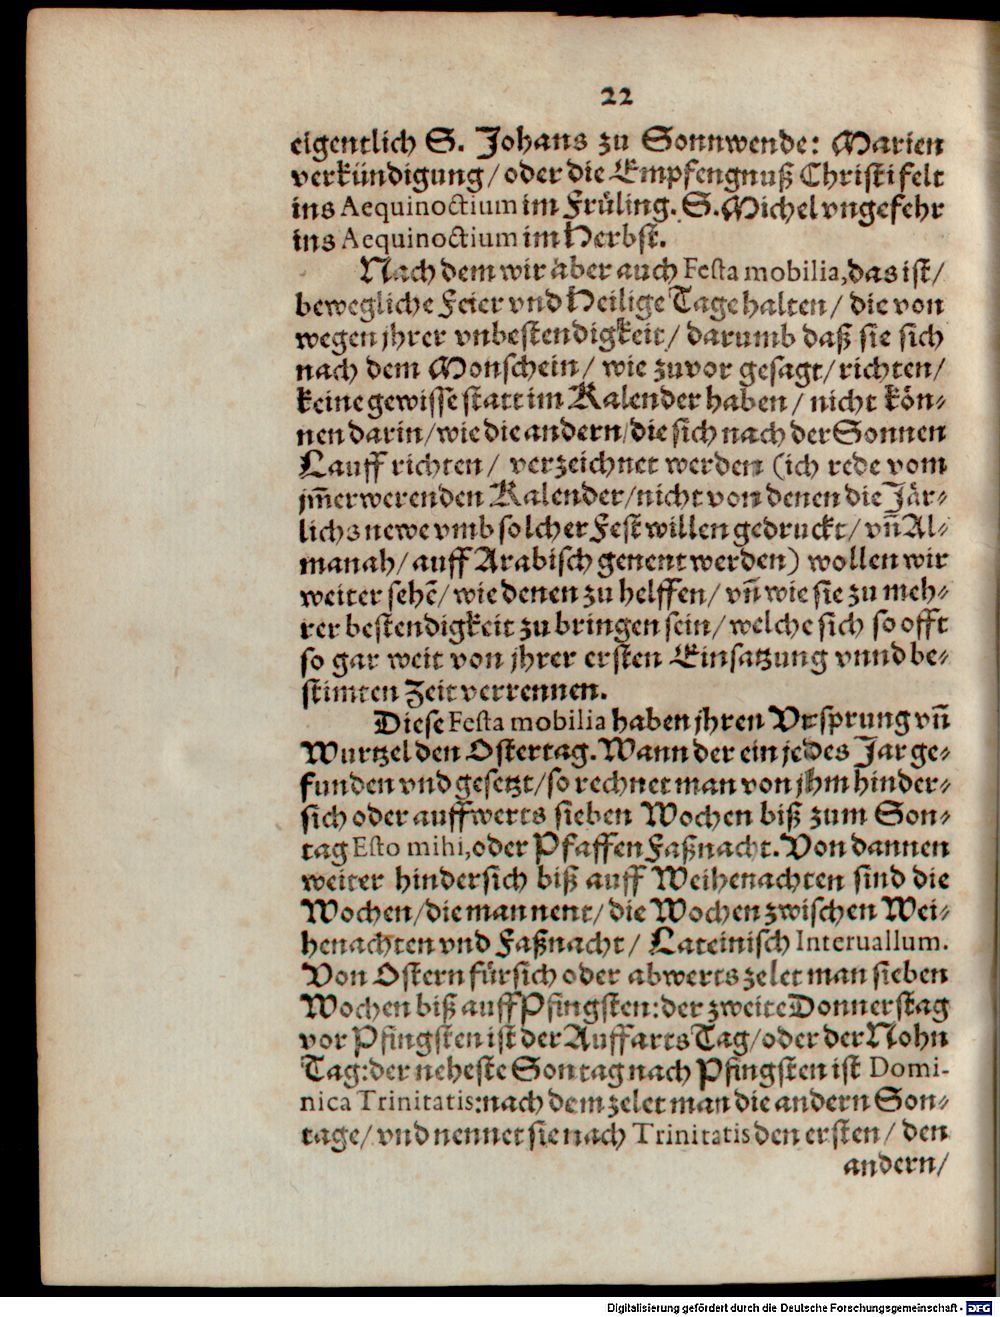 22
eigentlich S. Johans zu Sonnwende: Marien
verkündigung/ oder die Empfengnuß Christi felt
ins Aequinoctium im Früling. S. Michel vngefehr
ins Aequinoctium im Herbst.
Nach dem wir aber auch Festa mobilia, das ist/
bewegliche Feier vnd Heilige Tage halten/ die von
wegen jhrer vnbestendigkeit/ darumb daß sie sich
nach dem Monschein/ wie zuvor gesagt/ richten/
keine gewisse statt im Kalender haben/ nicht kön-
nen darin/ wie die andern/ die sich nach der Sonnen
Lauff richten/ verzeichnet werden (ich rede vom
jm̄erwerenden Kalender/ nicht von denen die Jär-
lichs newe vmb solcher Fest willen gedruckt/ vn̄ Al-
manah/ auff Arabisch genent werden) wollen wir
weiter sehē/ wie denen zu helffen/ vn̄ wie sie zu meh-
rer bestendigkeit zu bringen sein/ welche sich so offt
so gar weit von jhrer ersten Einsatzung vnnd be-
stimten Zeit verrennen.
Diese Festa mobilia haben jhren Vrsprung vn̄
Wurtzel den Ostertag. Wann der ein jedes Jar ge-
funden vnd gesetzt/ so rechnet man von jhm hinder-
sich oder auffwerts sieben Wochen biß zum Son-
tag Esto mihi, oder Pfaffen Faßnacht. Von dannen
weiter hindersich biß auff Weihenachten sind die
Wochen/ die man nent/ die Wochen zwischen Wei-
henachten vnd Faßnacht/ Lateinisch Interuallum.
Von Ostern fürsich oder abwerts zelet man sieben
Wochen biß auff Pfingsten: der zweite Donnerstag
vor Pfingsten ist der Auffarts Tag/ oder der Nohn
Tag: der neheste Sontag nach Pfingsten ist Domi-
nica Trinitatis: nach dem zelet man die andern Son-
tage/ vnd nennet sie nach Trinitatis den ersten/ den
andern/
Digitalisierung gefördert durch die Deutsche Forschungsgemeinschaft - DFG